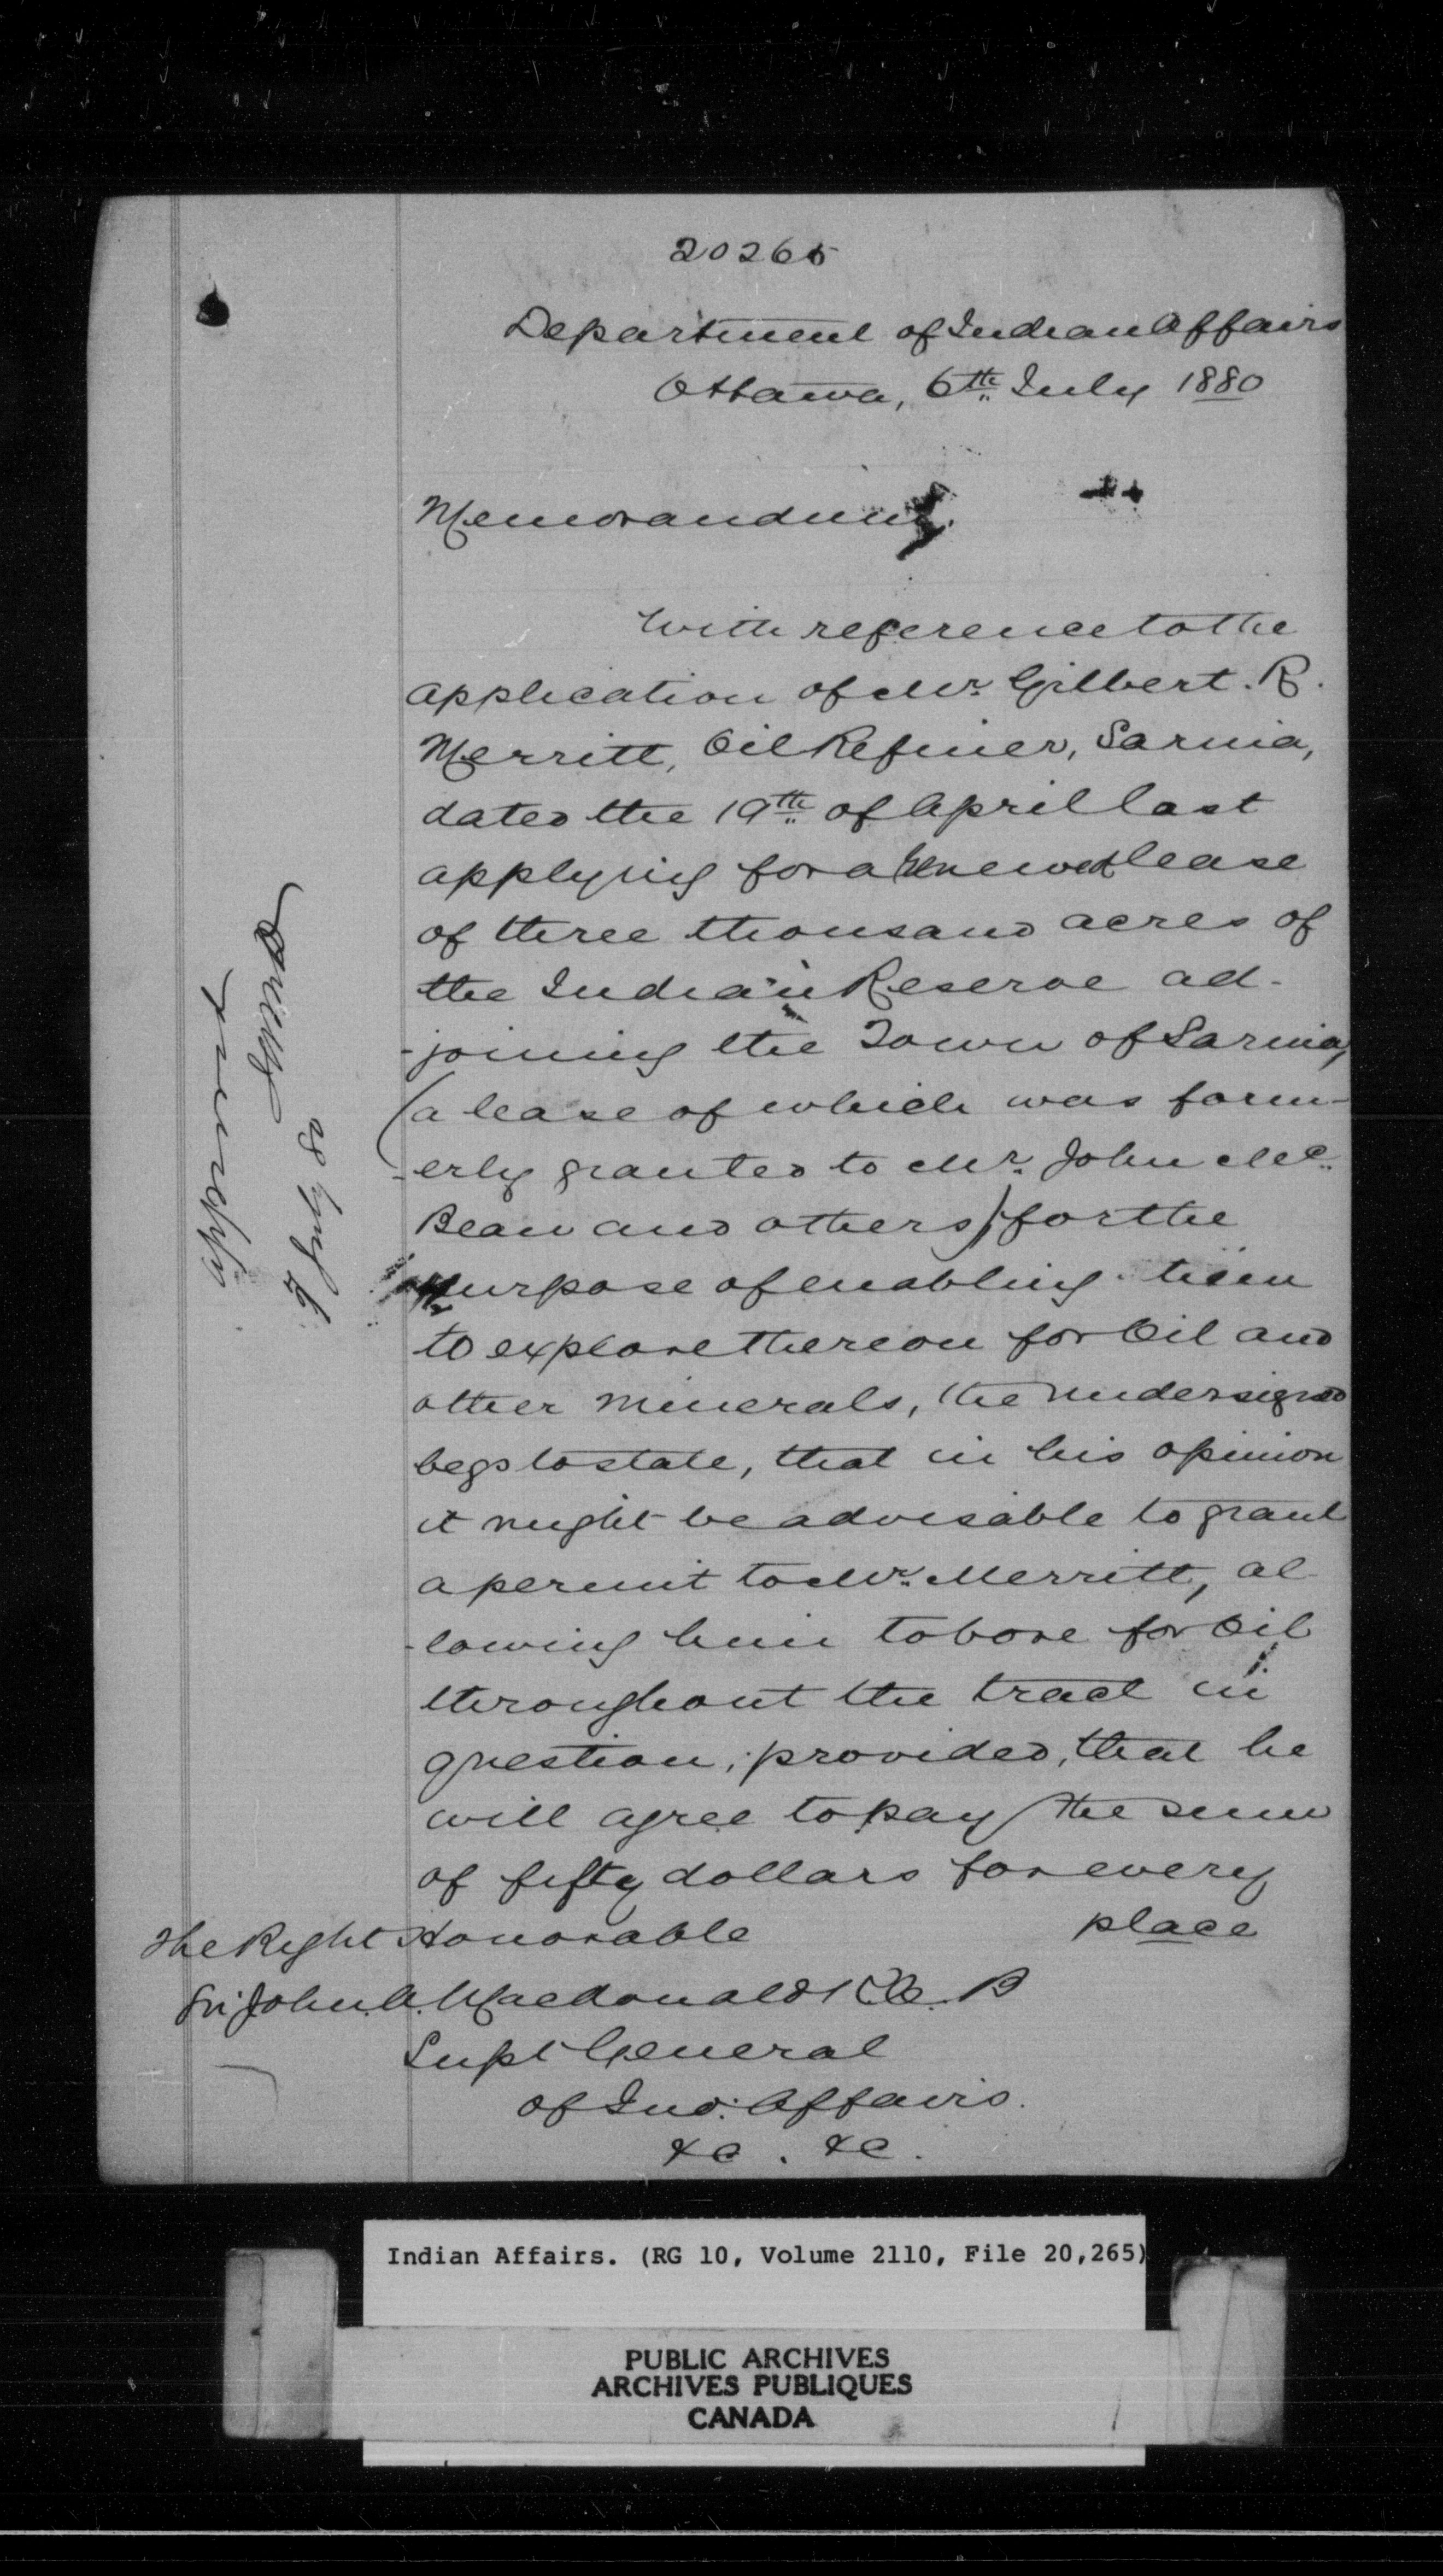 20265
Department of Indian Affairs
Ottawa, 6th July 1880
Memorandum.
With reference to the
application of Mr. Gilbert. R.
Merritt, Oil Refiner, Sarnia,
dated the 19th of April last
applying for a renewed lease
of three thousand acres of
the Indian Reserve ad-
-joining the Town of Sarnia,
(a lease of which was form-
-erly granted to Mr. John Mc
Bean and others) for the
purpose of enabling him
to explore thereon for Oil and
other minerals, the undersigned
begs to state, that in his opinion
it might be advisable to grant
a permit to Mr. Merritt, al-
-lowing him to bore for Oil
throughout the tract in
question, provided, that he
will agree to pay the sum
of fifty dollars for every
place
The Right Honorable
Sir John. A. Macdonald K.C.B
Supt General
of Ind. Affairs.
&c. &c.
approved
7 July 80
Indian Affairs. (RG 10, Volume 2110, File 20,265)
PUBLIC ARCHIVES
ARCHIVES PUBLIQUES
CANADA